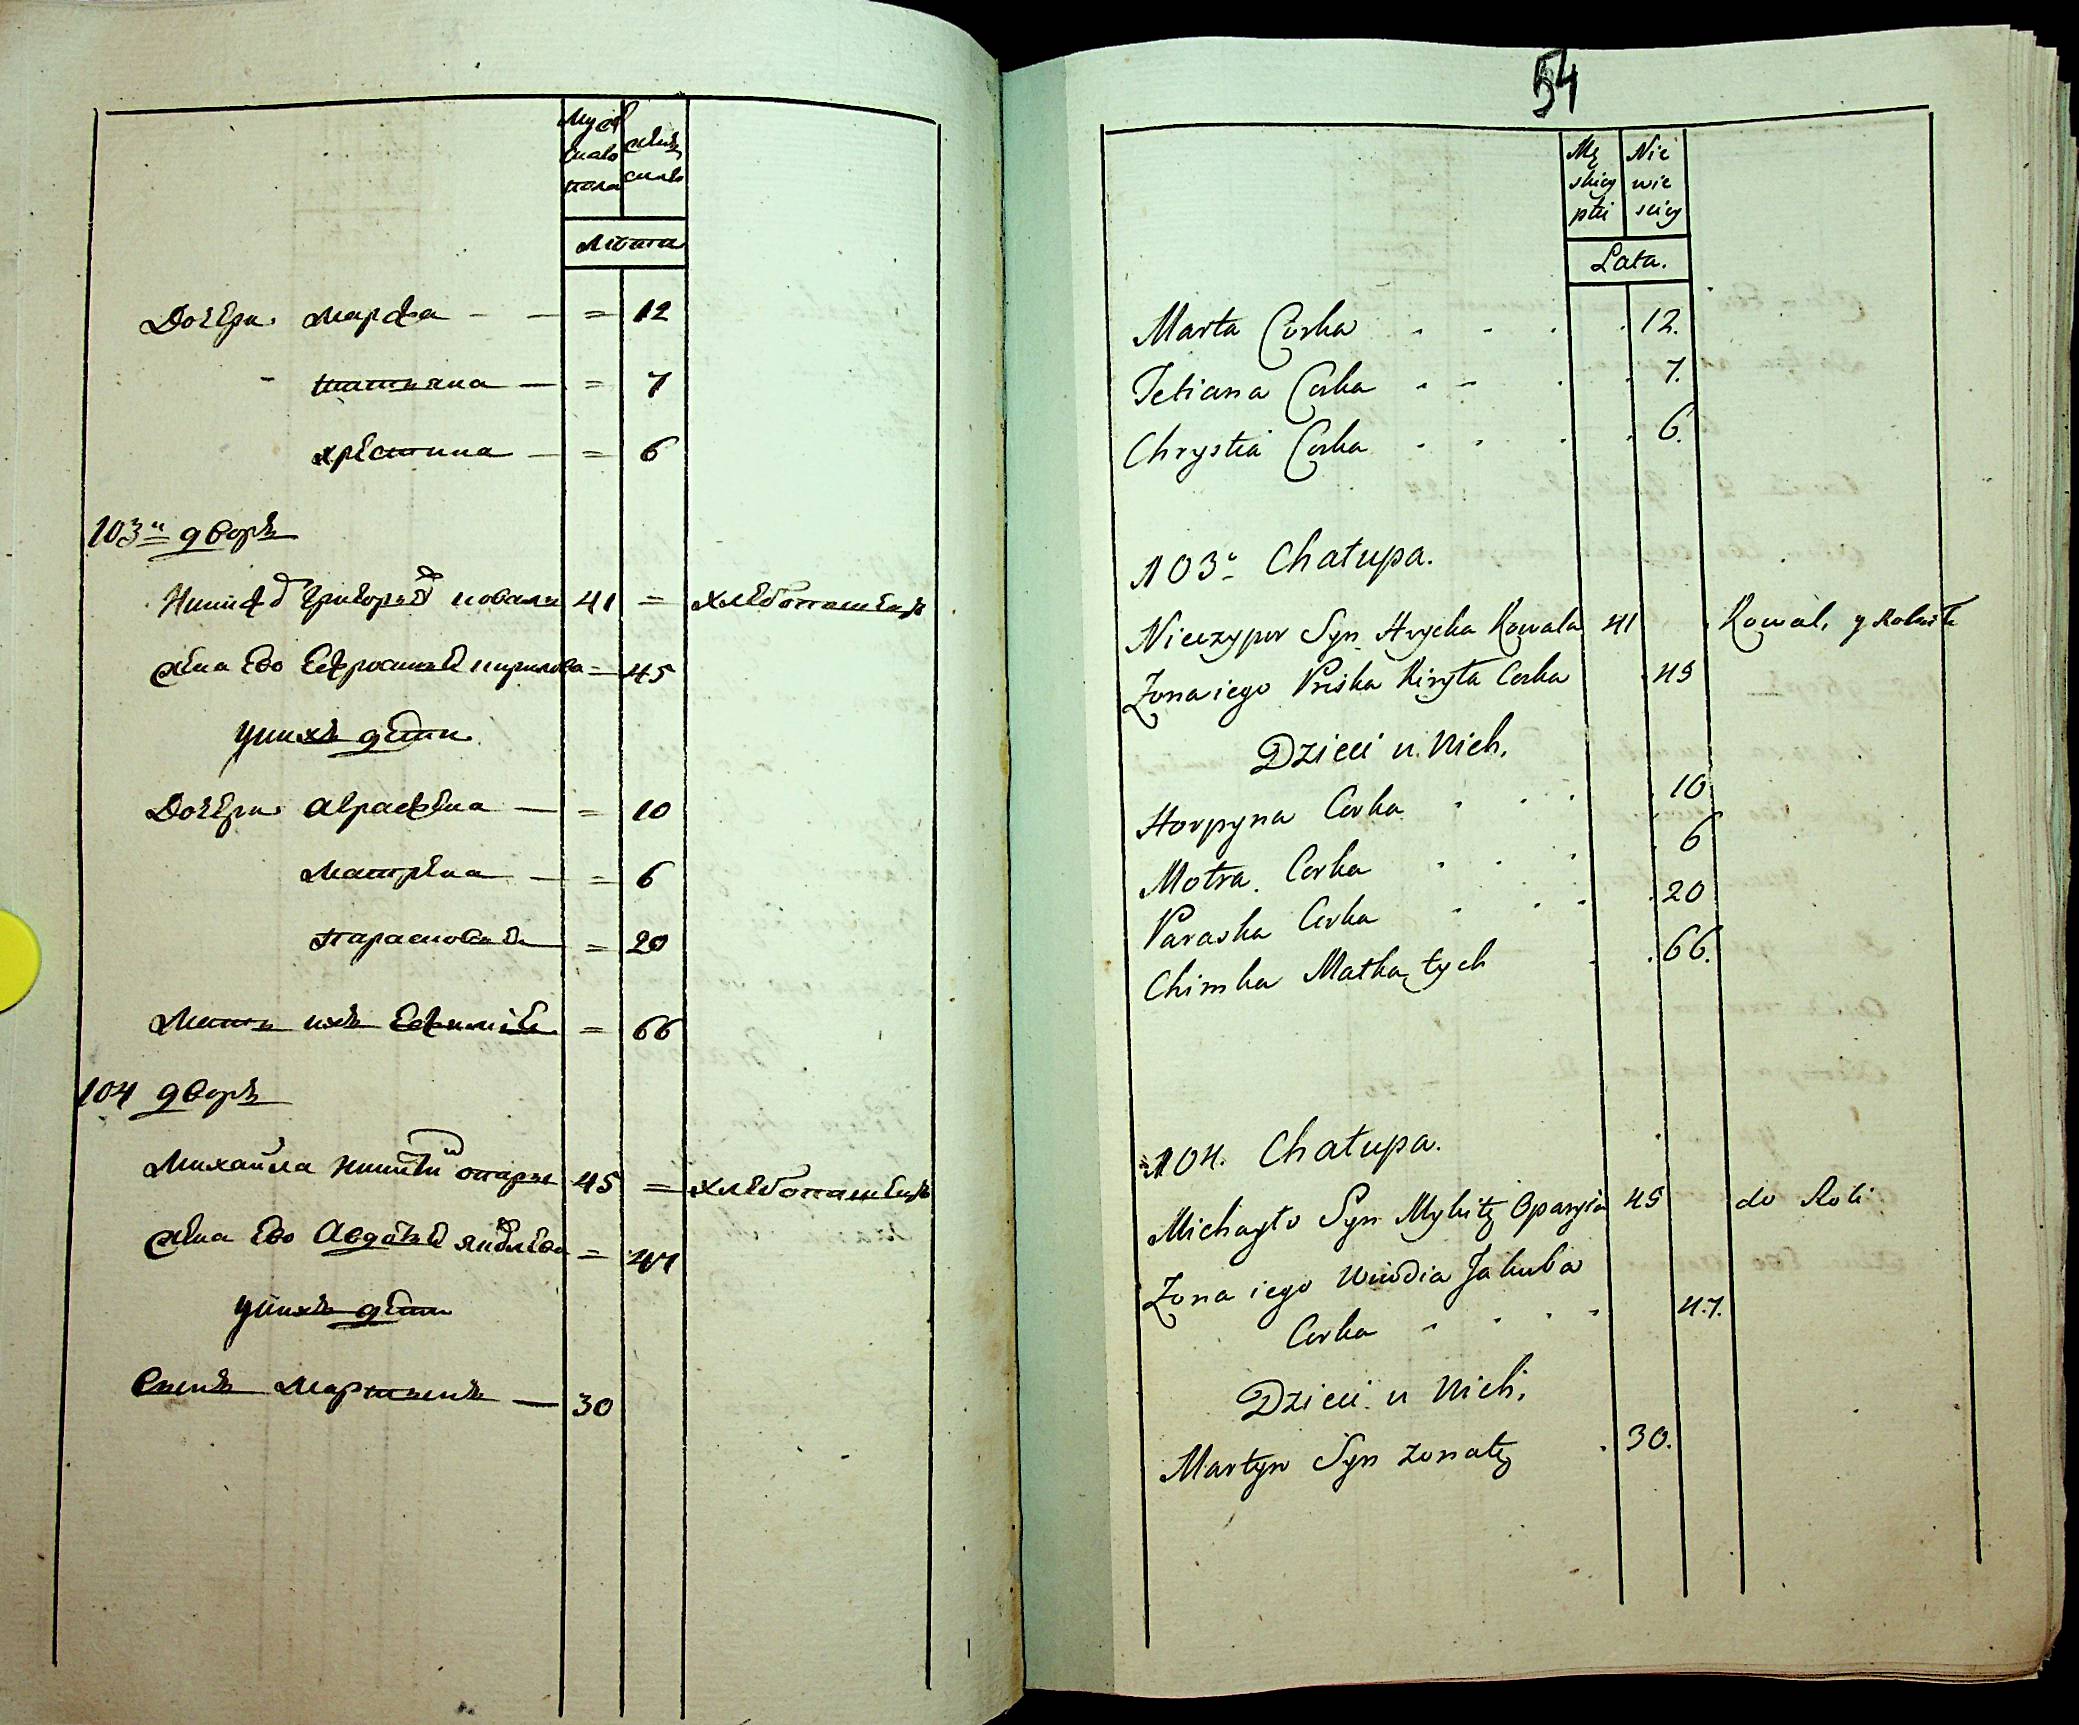 Муж женъ
скаго скаго
пола
лѣта
Дочери Марфа - - = 12
- татьяна — = 7
христина — = 6
103й дворъ
Ничифо Григорьей коваль 41 = хлебопашецъ
Жена Ево Ефросинья кирилова = 45
У нихъ дети
Дочери Аграфена — = 10
Матрена — = 6
Парасковья = 20
Мать ихъ Ефимия = 66
104 дворъ
Михайла Никити опары 45 = хлебопашецъ
Жена Ево Авдотья яковлева = 47
У нихъ дети
Сынъ Мартынъ — 30
54
Mę Nie
skiey wie
płci sciey
Lata.
Marta Corka . - . . 12.
Tetiana Corka . - . . 7.
Chrystia Corka . . . . 6.
103a Chałupa.
Nieczypor Syn Hrycka Kowala 41 Kowal, y Robi
Zona iego Priska Kiryła Corka . 45
Dzieci u Nich.
Horpyna Corka . . . . 10
Motra Corka . . . 6
Paraska Corka . . . . 20
Chimka Matka tych . . 66.
104. Chałupa.
Michayło Syn Mykity Oparyia 45 do Roli
Zona iego Wiwdia Jakuba
Corka - . . - 47.
Dzieci u Nich.
Martyn Syn zonaty . 30.